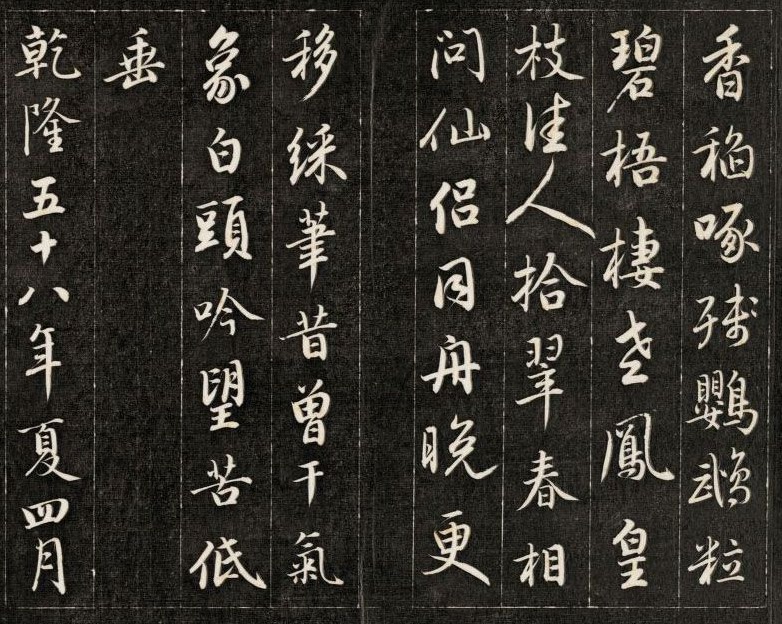 香稲啄残鸚鵡粒
碧梧棲老鳳皇
枝佳人拾翠春相
問仙侶同舟晚更
移綵筆昔曾干氣
象白頭吟望苦低
垂
乾隆五十八年夏四月